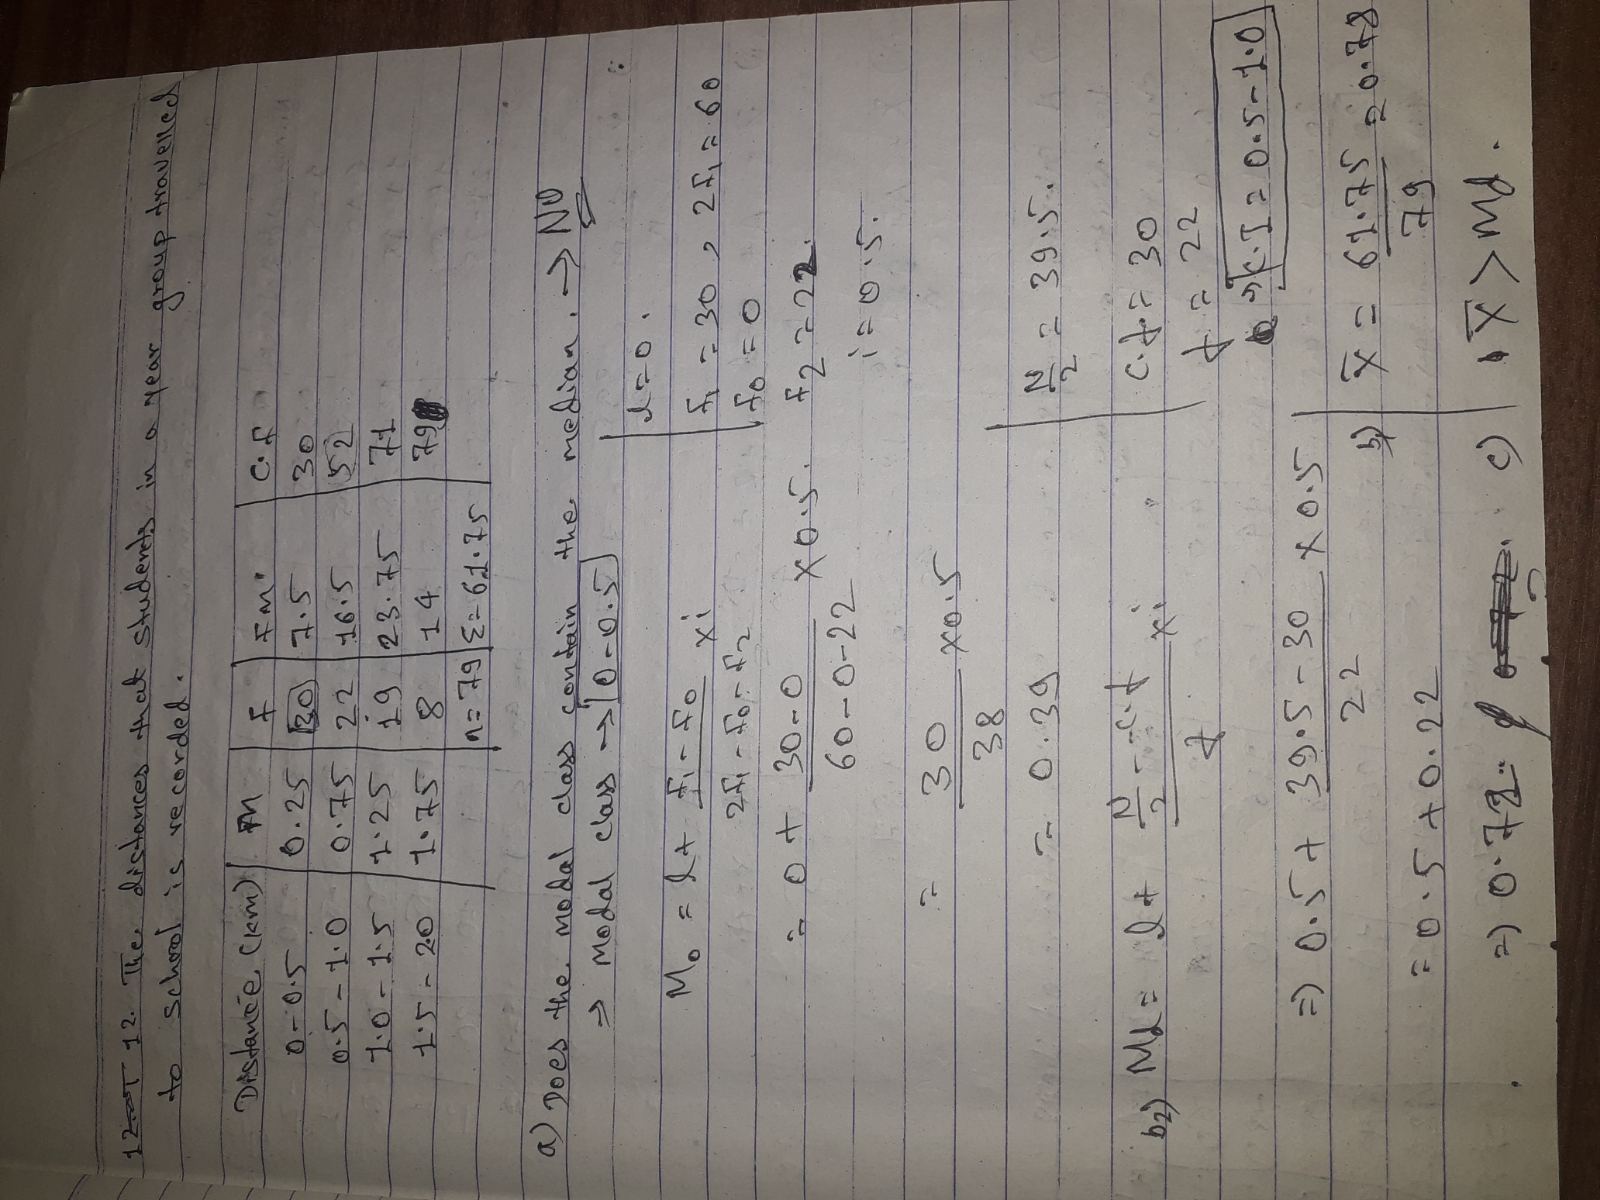 12. The distances that students in a year group travelled
to school is recorded.
Distance (km) M F FM C.F
0-0.5 0.25 30 7.5 30
0.5-1.0 0.75 22 16.5 52
1.0-1.5 1.25 19 23.75 71
1.5-20 1.75 8 14 79
n=79 Σ=61.75
a) Does the modal class contain the median. → NO
⇒ Modal class → 0-0.5
l=0.
M₀ = l+ F₁-F₀ / 2F₁-F₀-F₂ xi
F₁=30, 2F₁=60
F₀=0
= 0+ 30-0 / 60-0-22 x0.5.
F₂=22.
i=0.5.
= 30 / 38 x0.5
= 0.39
N/2 = 39.5.
b2) Md= l+ N/2 - c.f / f xi
c.f.=30
f = 22
C.I=0.5-1.0
⇒) 0.5+ 39.5-30 / 22 x0.5
b) x̄ = 61.75 / 79 = 0.78
= 0.5+0.22
=) 0.72
c) x̄ > Md.